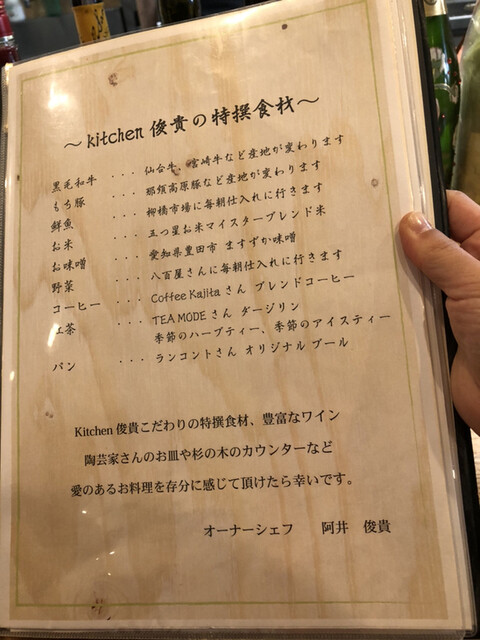 ～kitchen 俊貴の特撰食材～
黒毛和牛 ・・・ 仙台牛、宮崎牛など産地が変わります
もち豚 ・・・ 那須高原豚など産地が変わります
鮮魚 ・・・ 柳橋市場に毎朝仕入れに行きます
お米 ・・・ 五つ星お米マイスターブレンド米
お味噌 ・・・ 愛知県豊田市 ますずか味噌
野菜 ・・・ 八百屋さんに毎朝仕入れに行きます
コーヒー ・・・ Coffee Kajita さん ブレンドコーヒー
紅茶 ・・・ TEA MODE さん ダージリン
季節のハーブティー、季節のアイスティー
パン ・・・ ランコントさん オリジナル ブール
Kitchen 俊貴こだわりの特撰食材、豊富なワイン
陶芸家さんのお皿や杉の木のカウンターなど
愛のあるお料理を存分に感じて頂けたら幸いです。
オーナーシェフ 阿井 俊貴